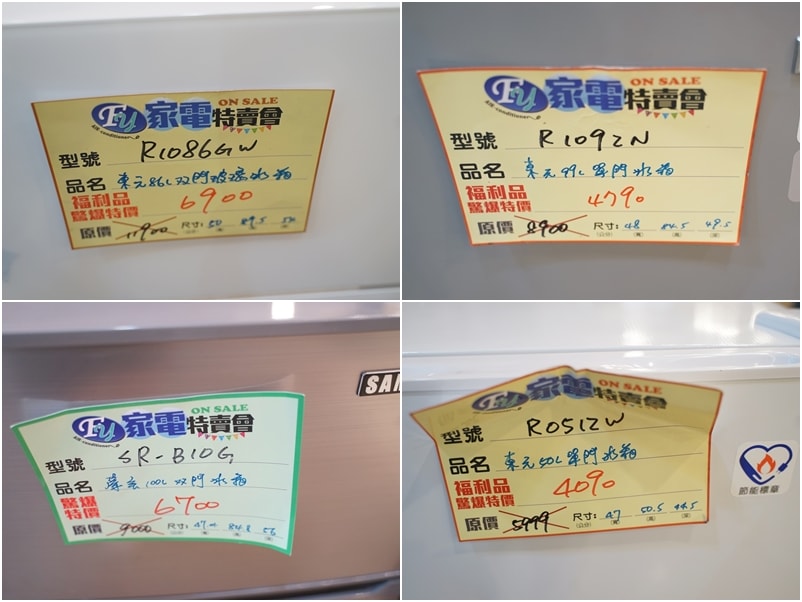 Fy 家電特賣會
ON SALE
Air conditioner
型號 R1086GW
品名 東元86L双門玻璃冰箱
福利品
驚爆特價 6900
原價 11900 尺寸: 50 89.5 52
(公分) 寬 高 深
Fy 家電特賣會
ON SALE
Air conditioner
型號 R1092N
品名 東元99L單門冰箱
福利品
驚爆特價 4790
原價 8900 尺寸: 48 84.5 49.5
(公分) 寬 高 深
SAM
Fy 家電特賣會
ON SALE
Air conditioner
型號 SR-B10G
品名 100L双門冰箱
驚爆
特價 6700
原價 9000 尺寸: 84.8 56
(公分) 寬 高 深
Fy 家電特賣會
ON SALE
Air conditioner
型號 R0512W
品名 東元50L單門冰箱
福利品
驚爆特價 4090
原價 5999 尺寸: 47 50.5 44.5
(公分) 寬 高 深
節能標章